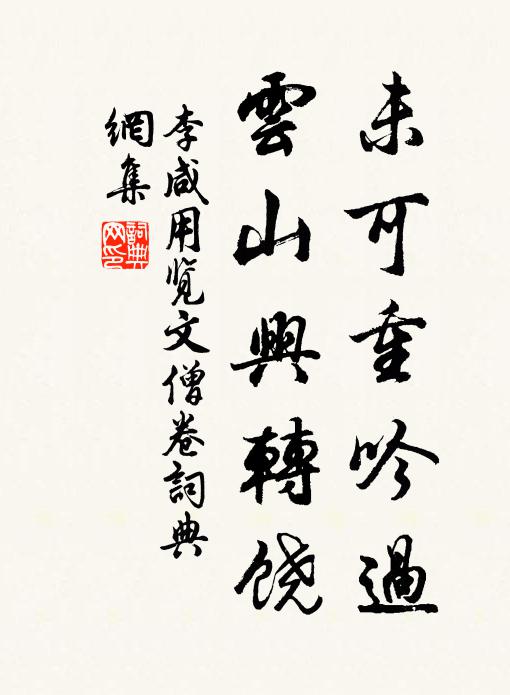 未可重吟過
雲山興轉饶
李咸用览文僧卷詞典
網集
詞典
网印